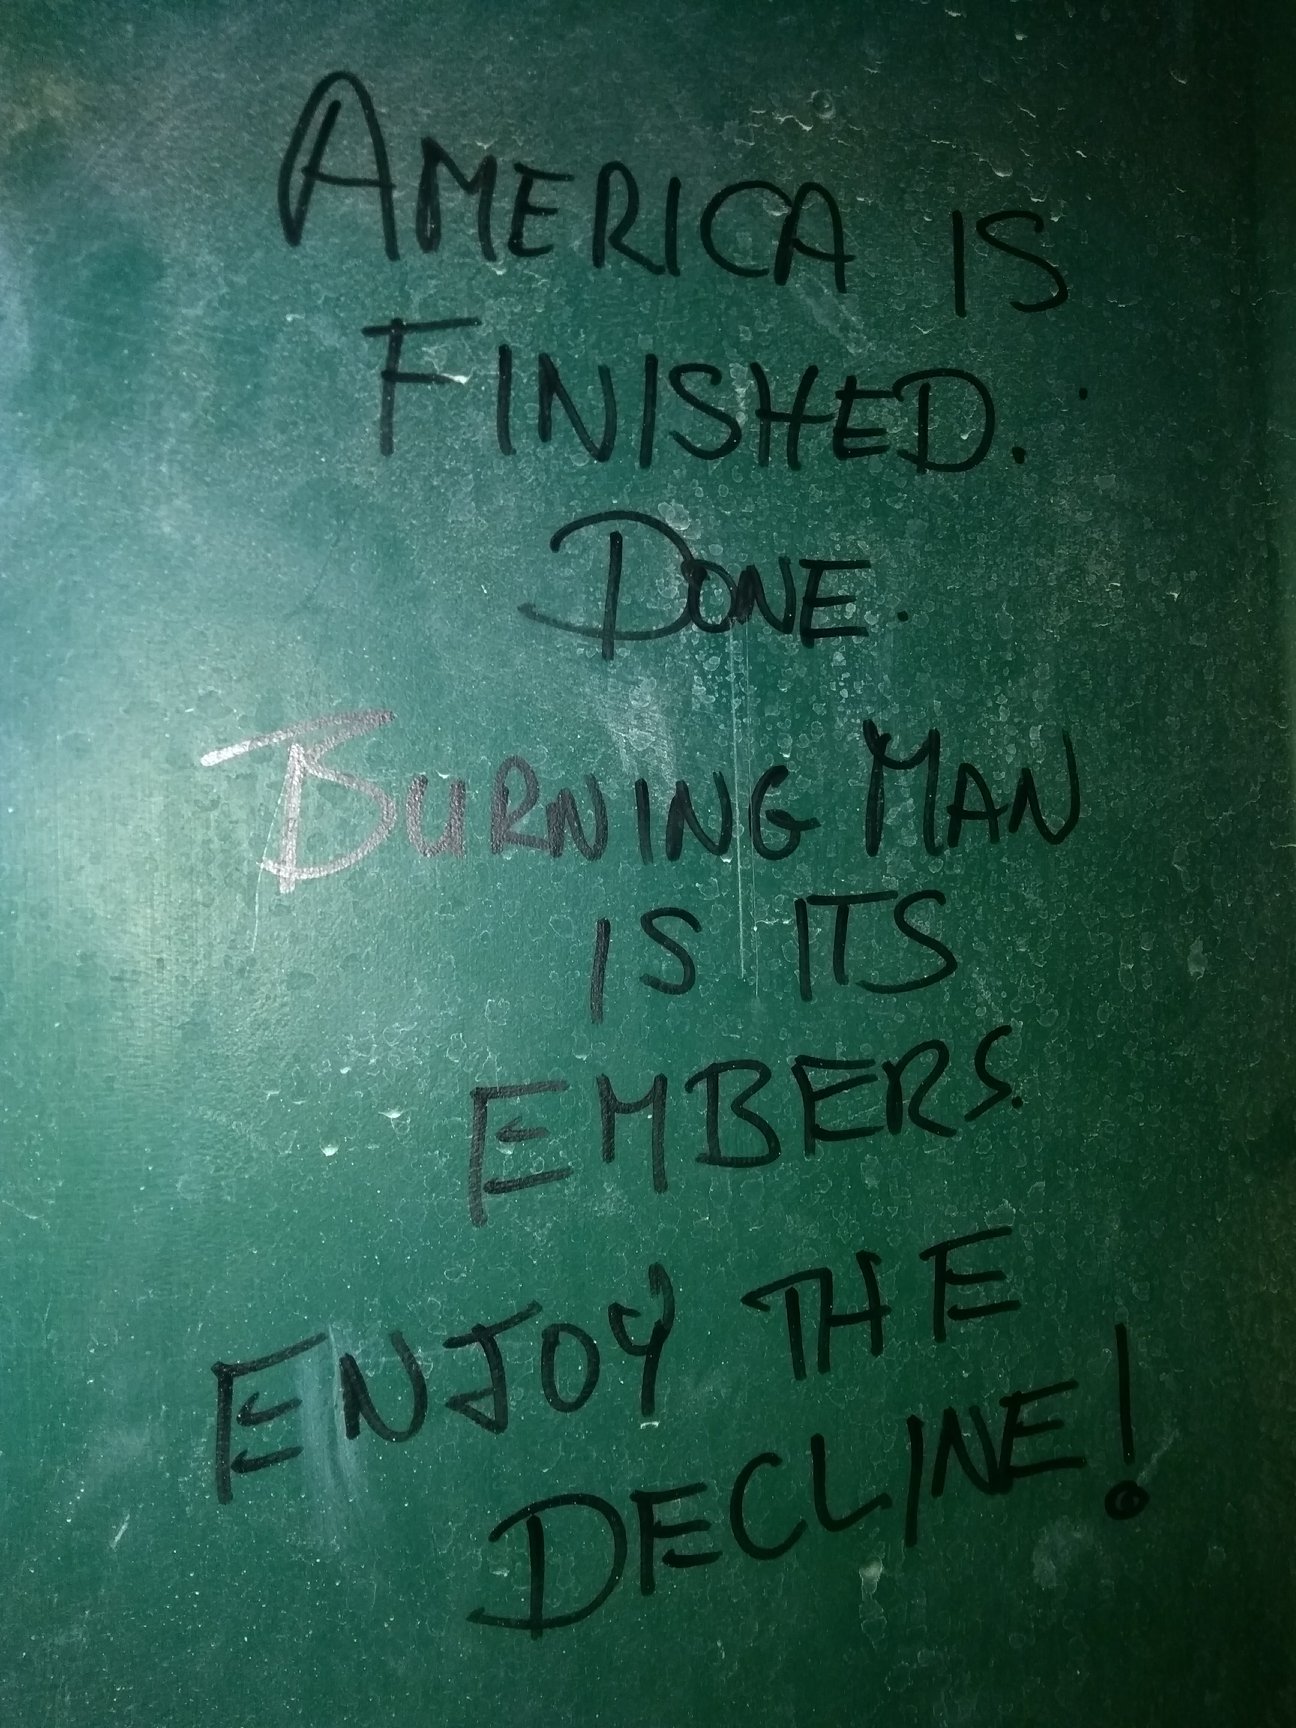 AMERICA IS
FINISHED.
DONE.
BURNING MAN
IS ITS
EMBERS.
ENJOY THE
DECLINE!